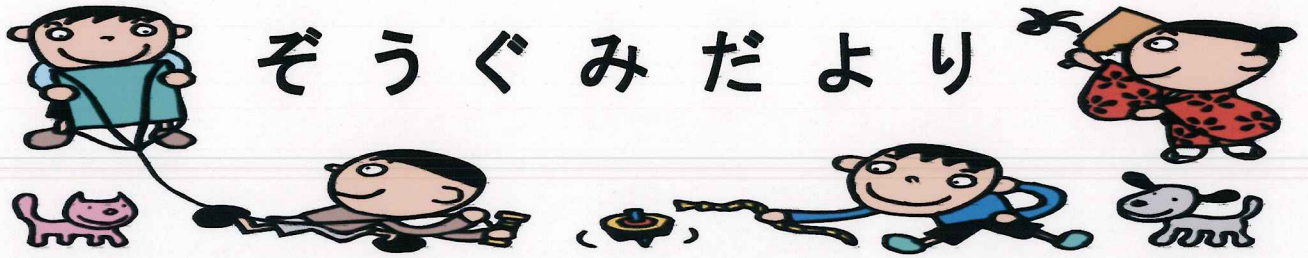 ぞうぐみだより